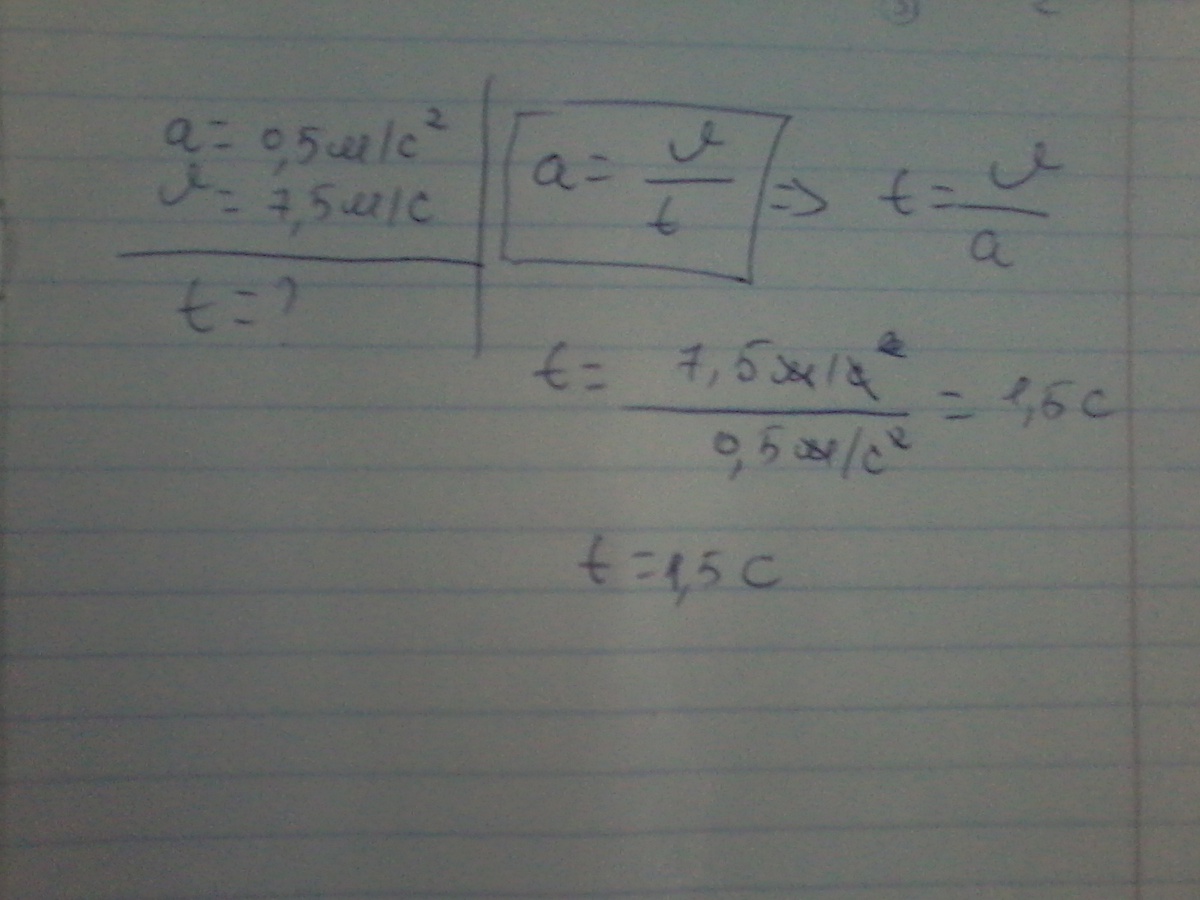 a = 0,5 м/с²
v = 7,5 м/с
t = ?
a = v/t => t = v/a
t = 7,5 м/с²/0,5 м/с² = 1,5 с
t = 1,5 с